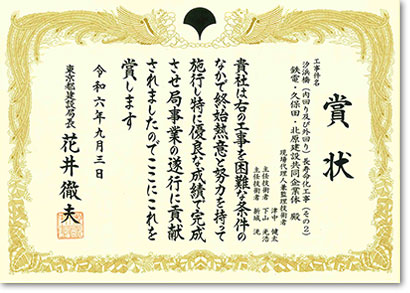 賞状
工事件名
汐浜橋(内回り及び外回り)長寿命化工事(その2)
鉄電・久保田・北原建設共同企業体 殿
現場代理人兼監理技術者 津中 健太
主任技術者 下山 光浩
主任技術者 新城 流
貴社は右の工事を困難な条件の
なかで終始熱意と努力を持って
施行し特に優良な成績で完成
させ局事業の遂行に貢献
されましたのでここにこれを
賞します
令和六年九月三日
東京都建設局長 花井徹夫